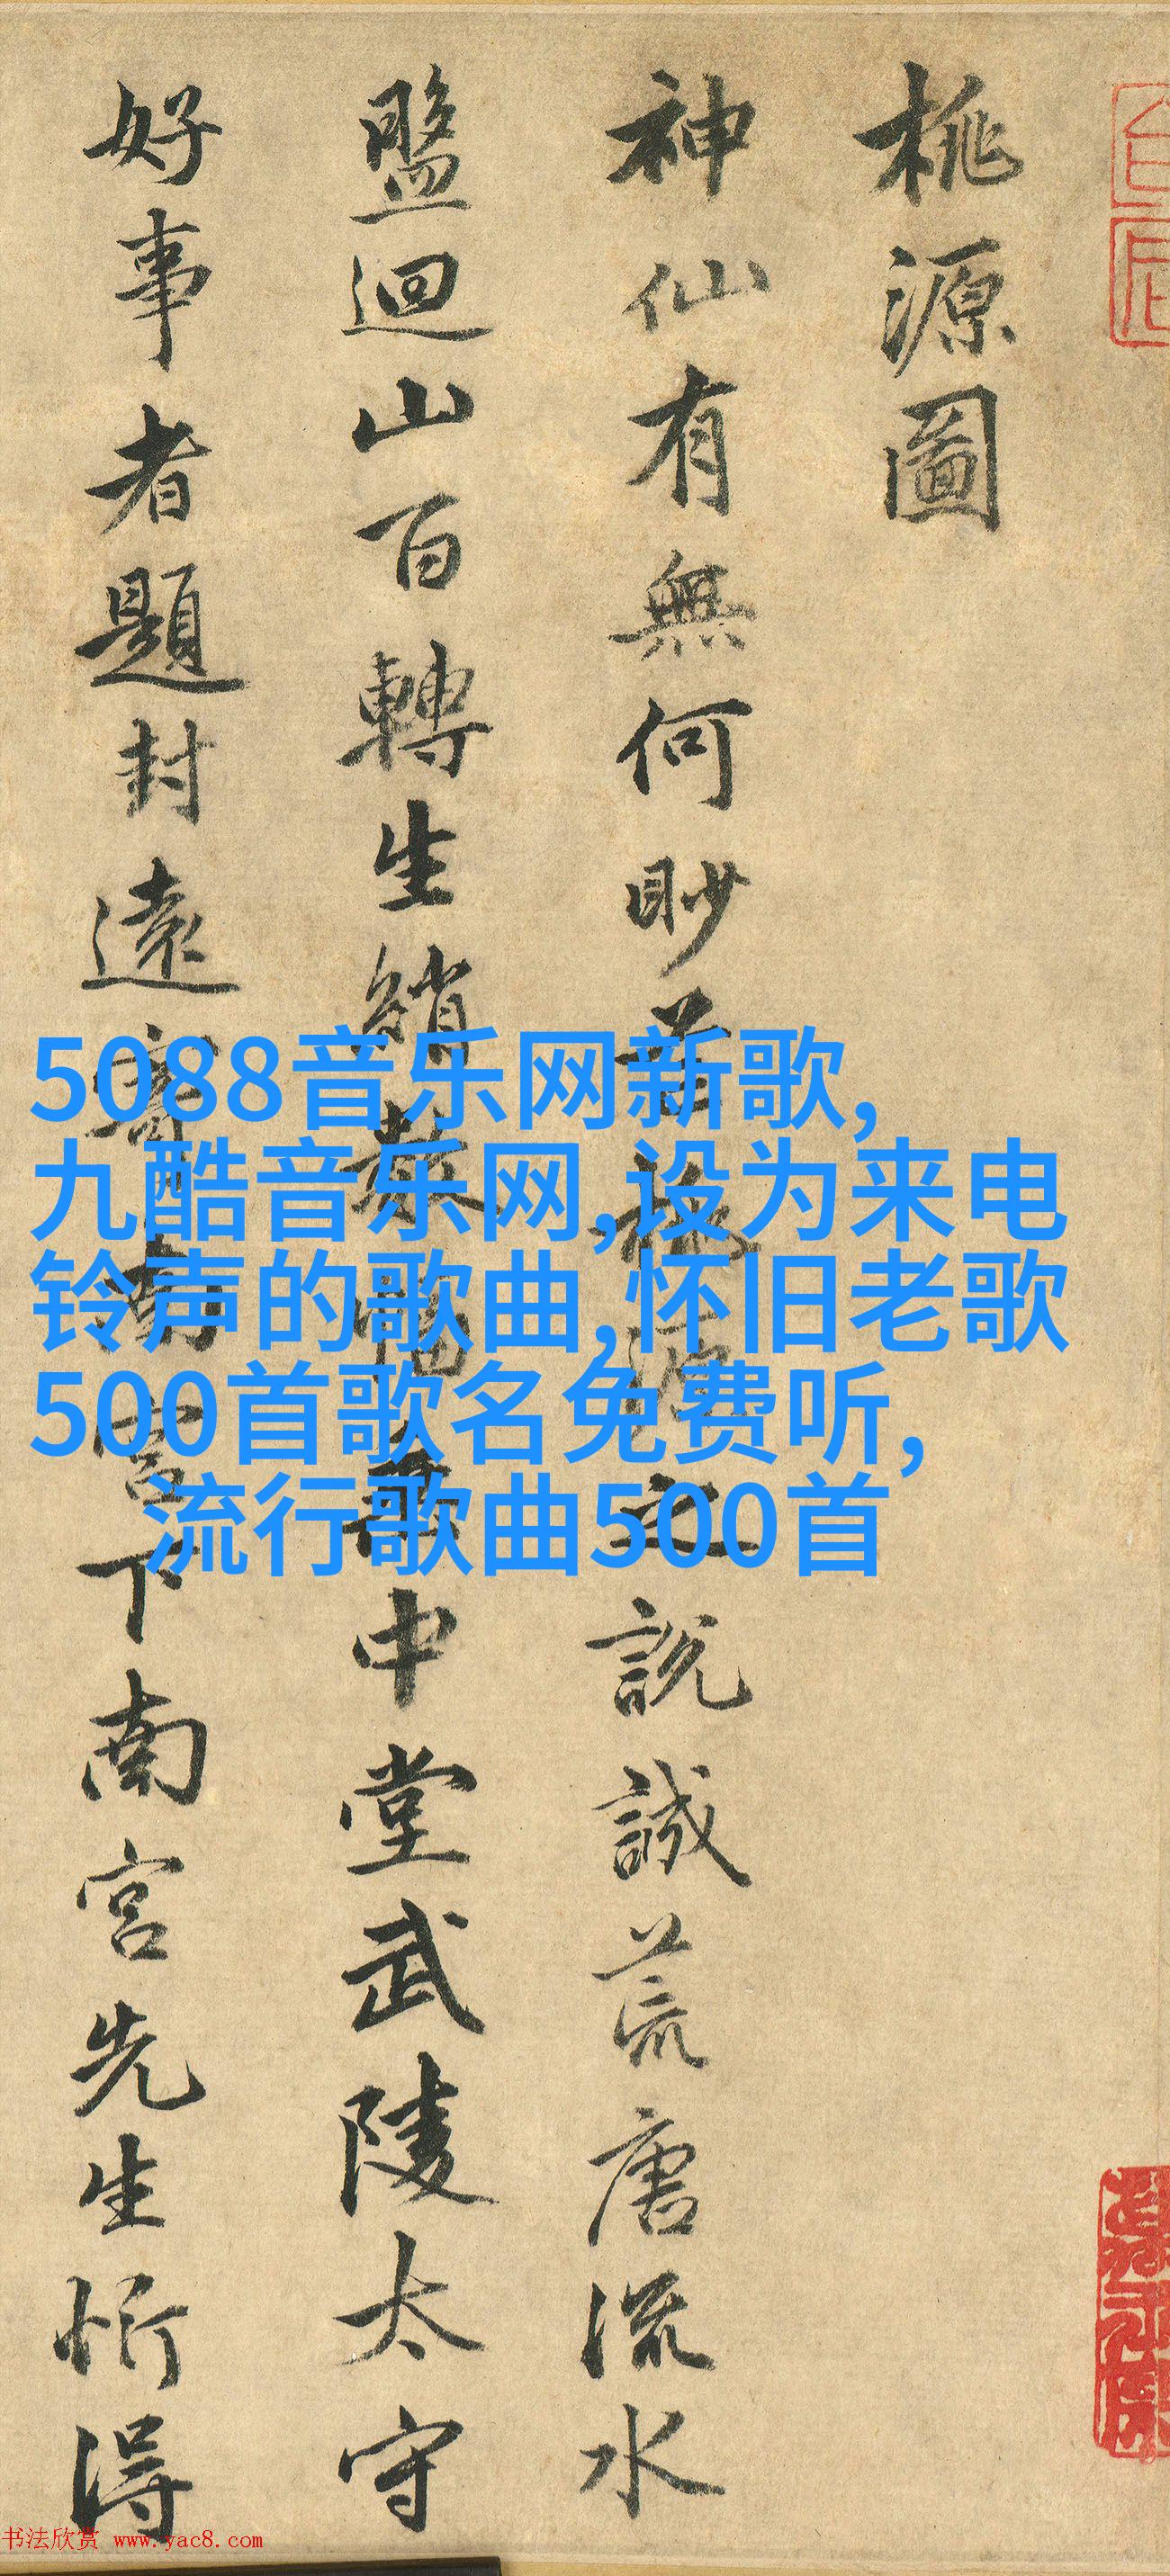 桃源圖
神仙有無何眇芒桃源之說誠荒唐流水
盤迴山百轉生綃數幅垂中堂武陵太守
好事者題封遠寄南宮下南宮先生忻得
5088音乐网新歌,
九酷音乐网,设为来电
铃声的歌曲,怀旧老歌
500首歌名免费听,
流行歌曲500首
书法欣赏 www.yac8.com